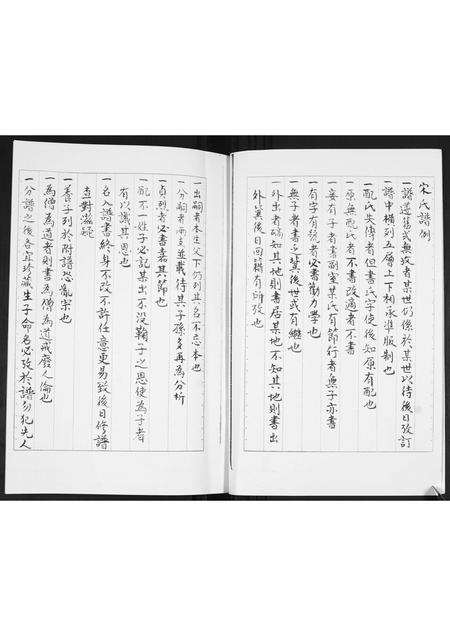 宋氏譜例
一譜遵舊或無攷者某世仍係於某世以待後日改訂
一譜中橫列五層上下相承準服制也
一配氏失傳者但書氏字使後知原有配也
原無配氏者不書改適者不書
一妾有子者書副室某氏有節行者無子亦書
一有字有號者必書勸力學也
一無子者書乏冀後世或有繼也
一外出者確知其地則書居某地不知其地則書出
外冀後日回籍有所攷也
一出嗣者本生父下仍列其名不忘本也
一分嗣者兩支並載待其子孫多再為分析
一貞烈者必書嘉其節也
一配不一姓子必記某出不没鞠子之恩使為子者
有以識其恩也
一名入譜書終身不改不許任意更易致後日修譜
查對滋疑
一養子列於附譜恐亂宗也
一為僧為道者則書為僧為道戒廢人倫也
一分譜之後各宜珍藏生子命名必攷於譜勿犯先人